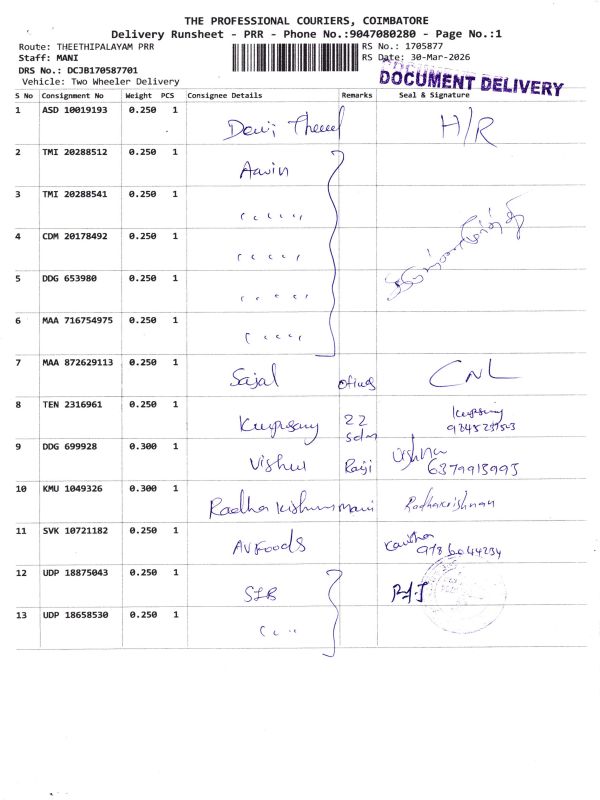 THE PROFESSIONAL COURIERS, COIMBATORE
Delivery Runsheet - PRR - Phone No.:9047080280 - Page No.:1
Route: THEETHIPALAYAM PRR
RS No.: 1705877
Staff: MANI
RS Date: 30-Mar-2026
DRS No.: DCJB170587701
DOCUMENT DELIVERY
Vehicle: Two Wheeler Delivery
S No Consignment No Weight PCS Consignee Details Remarks Seal & Signature
1 ASD 10019193 0.250 1 H/R
2 TMI 20288512 0.250 1 Aavin
3 TMI 20288541 0.250 1
4 CDM 20178492 0.250 1
5 DDG 653980 0.250 1
6 MAA 716754975 0.250 1
7 MAA 872629113 0.250 1 Sajal CNL
8 TEN 2316961 0.250 1 22
9 DDG 699928 0.300 1 6379913993
10 KMU 1049326 0.300 1 Radha Radhakrishnan
11 SVK 10721182 0.250 1 AVFoods
9786044234
12 UDP 18875043 0.250 1
13 UDP 18658530 0.250 1